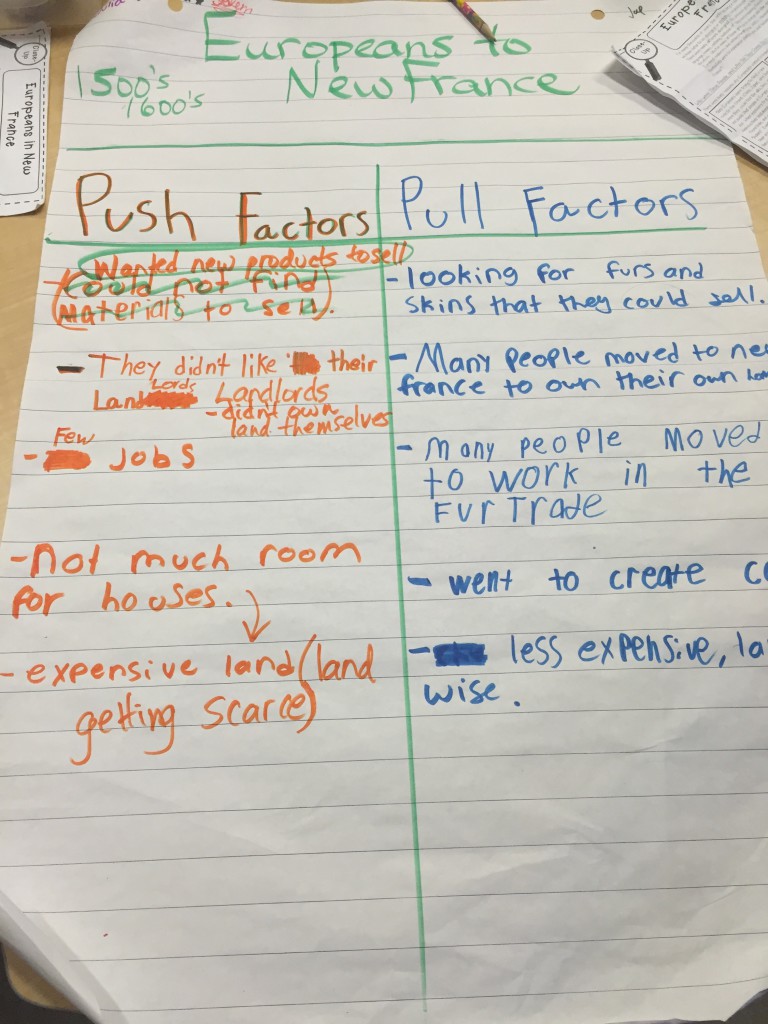 Europeans to
New France
1500's
1600's
Europeans in New
France
Push Factors
Wanted new products to sell
Could not find
materials to sell).
- They didn't like their
Landlords Landlords
- didn't own
land themselves
Few
- Jobs
- not much room
for houses.
- expensive land (land
getting scarce)
Pull Factors
- looking for furs and
skins that they could sell.
- Many people moved to
france to own their own
- Many people moved
to work in the
Fur Trade
- went to create
- less expensive,
wise.